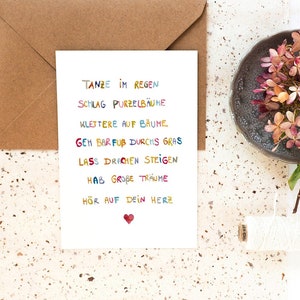 TANZE IM REGEN
SCHLAG PURZELBÄUME
KLETTERE AUF BÄUME
GEH BARFUß DURCHS GRAS
LASS DRACHEN STEIGEN
HAB GROßE TRÄUME
HÖR AUF DEIN HERZ